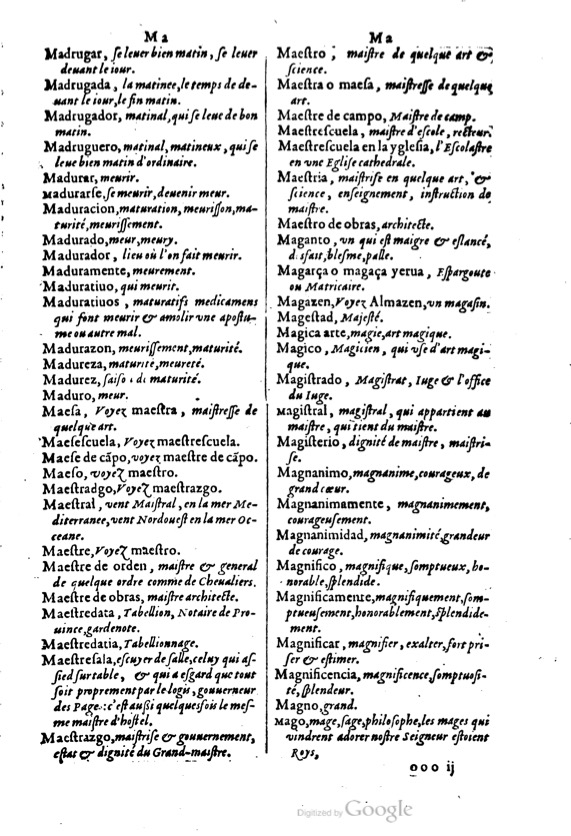 Ma
Madrugar, se leuer bien matin, se leuer
deuant le iour.
Madrugada, la matinee, le temps de de-
uant le iour, le fin matin.
Madrugador, matinal, qui se leue de bon
matin.
Madruguero, matinal, matineux, qui se
leue bien matin d'ordinaire.
Madurar, meurir.
Madurarse, se meurir, deuenir meur.
Maduracion, maturation, meurisson, ma-
turité, meurissement.
Madurado, meur, meury.
Madurador, lieu où l'on fait meurir.
Maduramente, meurement.
Maduratiuo, qui meurit.
Maduratiuos, maturatifs medicamens
qui font meurir & amolir vne apostu-
me ou autre mal.
Madurazon, meurissement, maturité.
Madureza, maturité, meureté.
Madurez, saiso de maturité.
Maduro, meur.
Maesa, Voyez maestra, maistresse de
quelque art.
Maesescuela, Voyez maestrescuela.
Maese de cãpo, voyez maestre de cãpo.
Maeso, voyez maestro.
Maestradgo, Voyez maestrazgo.
Maestral, vent Maistral, en la mer Me-
diterranee, vent Nordouest en la mer Oc-
ceane.
Maestre, Voyez maestro.
Maestre de orden, maistre & general
de quelque ordre comme de Cheualiers.
Maestre de obras, maistre architecte.
Maestredata, Tabellion, Notaire de Pro-
uince, gardenote.
Maestredatia, Tabellionnage.
Maestresala, escuyer de salle, celuy qui as-
sied sur table, & qui a esgard que tout
soit proprement par le logis, gouuerneur
des Page: c'est aussi quelquesfois le mes-
me maistre d'hostel.
Maestrazgo, maistrise & gouuernement,
estat & dignité du Grand-maistre.
Ma
Maestro, maistre de quelque art &
science.
Maestra o maesa, maistresse de quelque
art.
Maestre de campo, Maistre de camp.
Maestrescuela, maistre d'escole, recteur.
Maestrescuela en la yglesia, l'Escolastre
en vne Eglise cathedrale.
Maestria, maistrise en quelque art, &
science, enseignement, instruction de
maistre.
Maestro de obras, architecte.
Maganto, vn qui est maigre & eslancé,
desfait, blesme, palle.
Magarça o magaça yerua, Espargoute
ou Matricaire.
Magazen, Voyez Almazen, vn magasin.
Magestad, Majesté.
Magica arte, magie, art magique.
Magico, Magicien, qui vse d'art magi-
que.
Magistrado, Magistrat, Iuge & l'office
du Iuge.
Magistral, magistral, qui appartient au
maistre, qui tient du maistre.
Magisterio, dignité de maistre, maistri-
se.
Magnanimo, magnanime, courageux, de
grand cœur.
Magnanimamente, magnanimement,
courageusement.
Magnanimidad, magnanimité, grandeur
de courage.
Magnifico, magnifique, somptueux, ho-
norable, splendide.
Magnificamente, magnifiquement, som-
ptueusement, honorablement, splendide-
ment.
Magnificar, magnifier, exalter, fort pri-
ser & estimer.
Magnificencia, magnificence, somptuosi-
té, splendeur.
Magno, grand.
Mago, mage, sage, philosophe, les mages qui
vindrent adorer nostre Seigneur estoient
Roys,
ooo ij
Digitized by Google